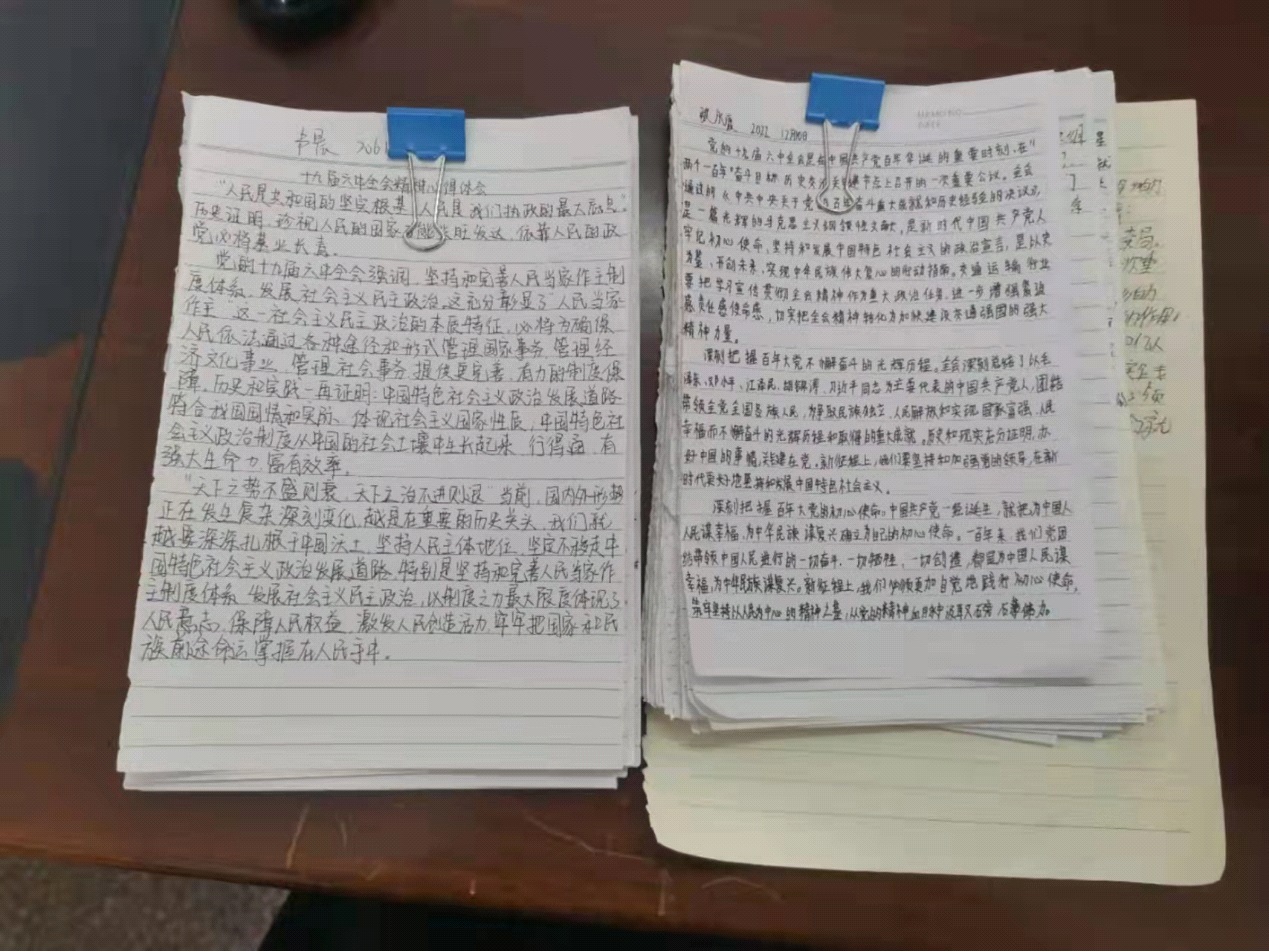 十九届六中全会精神心得体会
“人民是共和国的坚实根基,人民是我们执政的最大底气”
历史证明,珍视人民的国家 旺发达,依靠人民的政
党必将基业长青。
党的十九届六中全会强调,坚持和完善人民当家作主制
度体系,发展社会主义民主政治。这充分彰显了“人民当家
作主”这一社会主义民主政治的本质特征,必将为确保
人民依法通过各种途径和形式管理国家事务,管理经
济文化事业,管理社会事务,提供更完善、有力的制度保
障。历史和实践一再证明:中国特色社会主义政治发展道路
符合我国国情和实际、体现社会主义国家性质,中国特色社
会主义政治制度从中国的社会土壤中生长起来,行得通、有
强大生命力、富有效率。
“天下之势不盛则衰,天下之治不进则退”当前,国内外形势
正在发生复杂深刻变化,越是在重要的历史关头,我们就
越要深深扎根于中国沃土,坚持人民主体地位,坚定不移走中
国特色社会主义政治发展道路,特别是坚持和完善人民当家作
主制度体系,发展社会主义民主政治,以制度之力最大限度体现了
人民意志,保障人民权益,激发人民创造活力,牢牢把国家和民
族前途命运掌握在人民手中。
2022 12月
党的十九届六中全会是在中国共产党百年华诞的重要时刻,在“
两个一百年”奋斗目标历史交 关键节点上召开的一次重要会议。全会
通过的《中共中央关于党的百年奋斗重大成就和历史经验的决议》,
是一篇光辉的马克思主义纲领性文献,是新时代中国共产党人
牢记初心使命,坚持和发展中国特色社会主义的政治宣言,是以史
为鉴、开创未来,实现中华民族伟大复兴的行动指南。交通运输行业
要把学习宣传贯彻全会精神作为重大政治任务,进一步增强紧迫
感责任感使命感,切实把全会精神转化为加快建设交通强国的强大
精神力量。
深刻把握百年大党不懈奋斗的光辉历程。全会深刻总结了以毛
泽东、邓小平、江泽民、胡锦涛、习近平同志为主要代表的中国共产党人,团结
带领全党全国各族人民,为争取民族独立、人民解放和实现国家富强、人民
幸福而不懈奋斗的光辉历程和取得的重大成就。历史和现实充分证明,办
好中国的事情,关键在党。新征程上,我们要坚持和加强党的领导,在新
时代更好地坚持和发展中国特色社会主义。
深刻把握百年大党的初心使命。中国共产党一经诞生,就把为中国人
人民谋幸福、为中华民族谋复兴确立为自己的初心使命。一百年来,我们党团
结带领中国人民进行的一切奋斗、一切牺牲、一切创造,都是为中国人民谋
幸福,为中华民族谋复兴。新征程上,我们必须更加自觉地践行初心使命,
筑牢坚持以人民为中心的精神之基,从党的精神血脉中